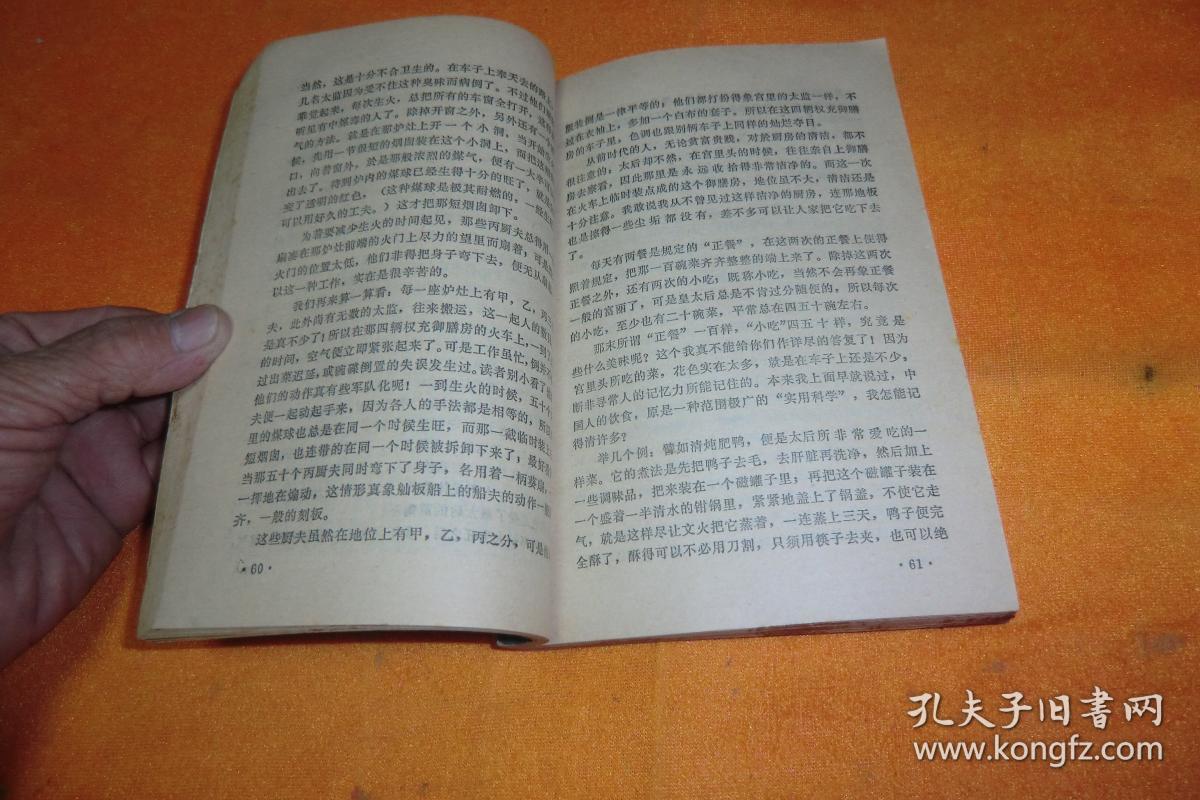 当然，这是十分不合卫生的。在车子上奉天去的路上
几名太监因为受不住这种臭味而病倒了。不过他们
乖觉起来，每次生火，总把所有的车窗全打开，这样
听见有中煤毒的人了。除掉开窗之外，另外还有
气的方法，就是在那炉灶上开一个小洞，当开始
候，先用一节很短的烟囱装在这个小洞上，而把这
口，向着窗外，於是那般浓烈的煤气，便有一大半
出去了。待到炉内的煤球已经生得十分的旺了，就是
完了透明的红色，（这种煤球是极其耐燃的，一经生
可以用好久的工夫。）这才把那短烟囱卸下。
为着要减少生火的时间起见，那些丙厨夫总得用
扁凑在那炉灶前端的火门上尽力的望里面扇着，可是
火门的位置太低，他们非得把身子弯下去，便无从扇
以这一种工作，实在是很辛苦的。
我们再来算一算看：每一座炉灶上有甲，乙，丙三
夫，此外尚有无数的太监，往来搬运，这一起人的数目
是真不少了！所以在那四辆权充御膳房的火车上，一到了
的时间，空气便立即紧张起来了。可是工作虽忙，倒并不
过出菜迟延，或碗碟倒置的失误发生过。读者别小看了
他们的动作真有些军队化呢！一到生火的时候，五十个
夫便一起动起手来，因为各人的手法都是相等的，所以
里的煤球也总是在同一个时候生旺，而那一截临时装上
短烟囱，也连带的在同一个时候被拆卸下来了，最好看
当那五十个丙厨夫同时弯下了身子，各用着一柄葵扇，
一挥地在煽动，这情形真象舢板船上的船夫的动作一般
齐，一般的刻板。
这些厨夫虽然在地位上有甲，乙，丙之分，可是
·60·
服装倒是一律平等的；他们都打扮得象宫里的太监一样，不
过在衣袖上，多加一个白布的套子。所以在这四辆权充御膳
房的车子里，色调也跟别辆车子上同样的灿烂夺目。
从前时代的人，无论贫富贵贱，对於厨房的清洁，都不
很注意的；太后却不然，在宫里头的时候，往往亲自上御膳
房去察看，因此那里是永远收拾得非常洁净的。而这一次
在火车上临时装点成的这个御膳房，地位虽不大，清洁还是
十分注意。我敢说我从不曾见过这样洁净的厨房，连那地板
也是擦得一些尘垢都没有，差不多可以让人家把它吃下去
了。
每天有两餐是规定的“正餐”，在这两次的正餐上便得
照着规定，把那一百碗菜齐齐整整的端上来了。除掉这两次
正餐之外，还有两次的小吃；既称小吃，当然不会再象正餐
一般的富丽了，可是皇太后总是不肯过分随便的，所以每次
的小吃，至少也有二十碗菜，平常总在四五十碗左右。
那末所谓“正餐”一百样，“小吃”四五十样，究竟是
些什么美味呢？这个我真不能给你们作详尽的答复了！因为
宫里头所吃的菜，花色实在太多，就是在车子上还是不少，
断非寻常人的记忆力所能记住的。本来我上面早就说过，中
国人的饮食，原是一种范围极广的“实用科学”，我怎能记
得清许多？
举几个例：譬如清炖肥鸭，便是太后所非常爱吃的一
样菜。它的煮法是先把鸭子去毛，去肝脏再洗净，然后加上
一些调味品，把来装在一个磁罐子里；再把这个磁罐子装在
一个盛着一半清水的钳锅里，紧紧地盖上了锅盖，不使它走
气，就是这样尽让文火把它蒸着，一连蒸上三天，鸭子便完
全酥了，酥得可以不必用刀割，只须用筷子去夹，也可以绝
·61·
孔夫子旧书网
www.kongfz.com